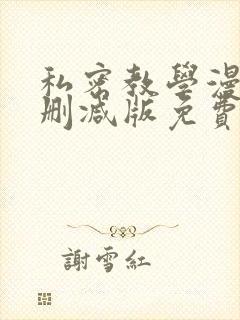 私密教學漫
刪減版免費
謝雪紅